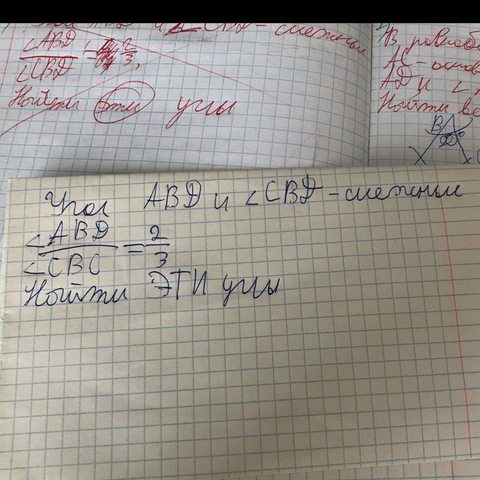 АВD и ∠CBD - смежные
∠ABD / ∠CBD = 2/3,
Найти эти углы
В равноб
АС - основ
AD и ∠
Найти ве
В
Угол ABD и ∠CBD - смежные
∠ABD / ∠CBC = 2/3
Найти ЭТИ углы